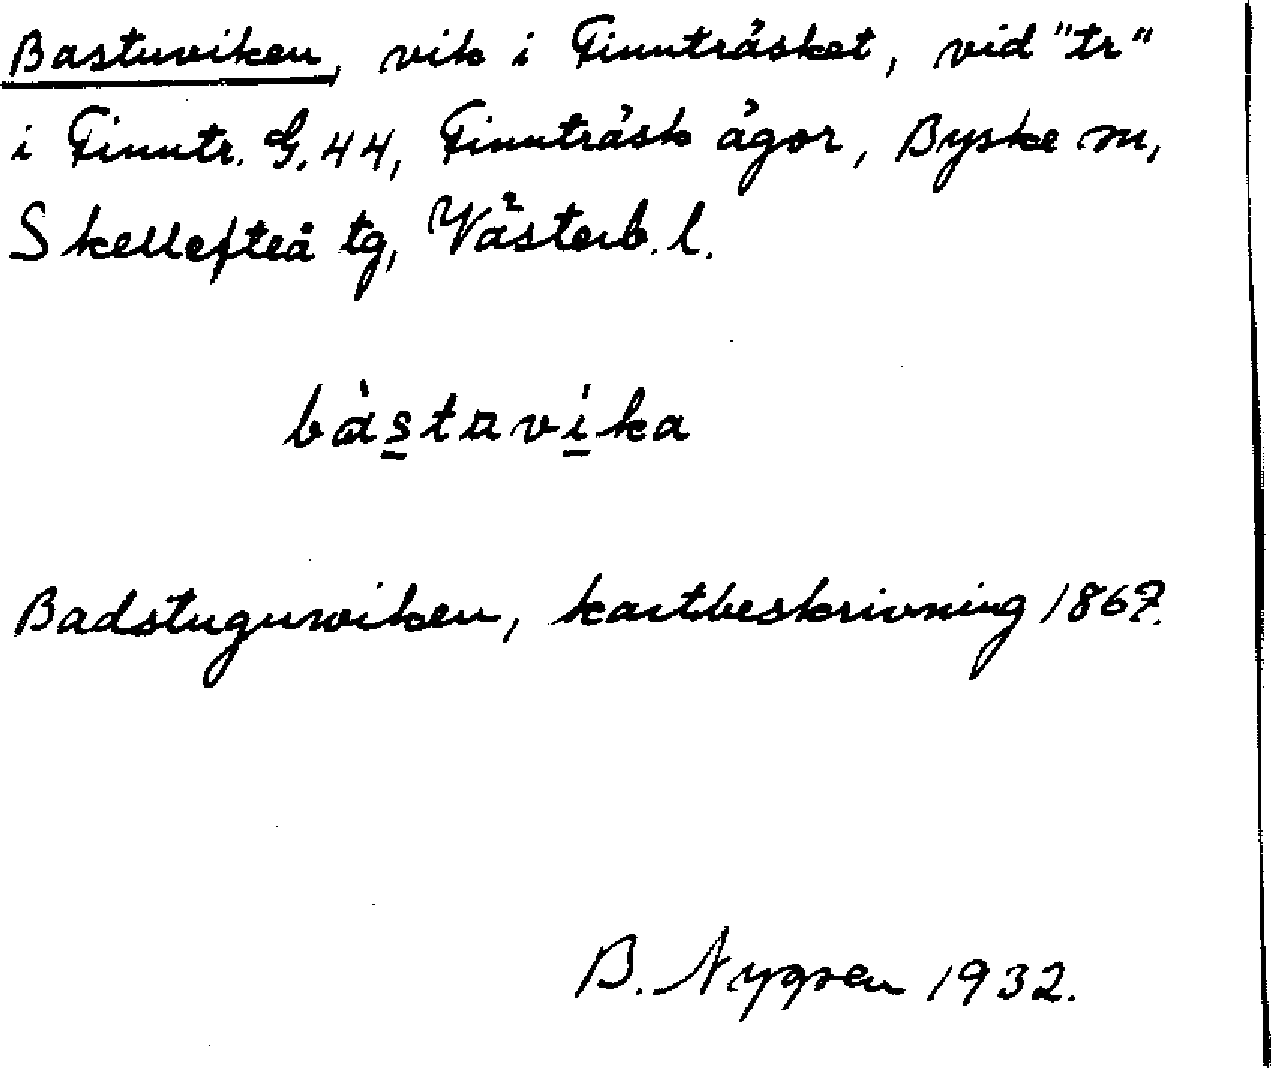 Bastuviken, vik i Finnträsket, vid "tr"
i Finntr. G. 44, Finnträsk ägor, Byske sn,
Skellefteå tg, Västerb. l.
bàstavika
Badstuguwiken, kartbeskrivning 1867.
B. Nygren 1932.